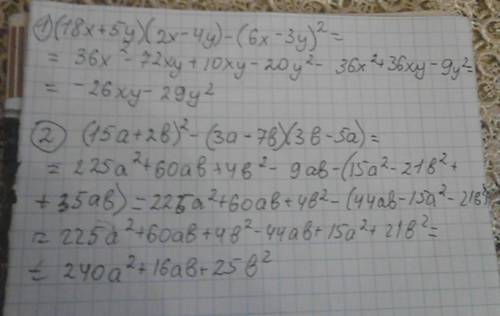 1) (18x+5y)(2x-4y)-(6x-3y)²=
= 36x²-72xy+10xy-20y²- 36x²+36xy-9y²=
= -26xy-29y²
2 (15a+2b)²-(3a-7b)(3b-5a)=
= 225a²+60ab+4b²- 9ab-(15a²-21b²+
+35ab)=225a²+60ab+4b²-(44ab-15a²-21b²)
= 225a²+60ab+4b²-44ab+15a²+21b²=
= 240a²+16ab+25b²